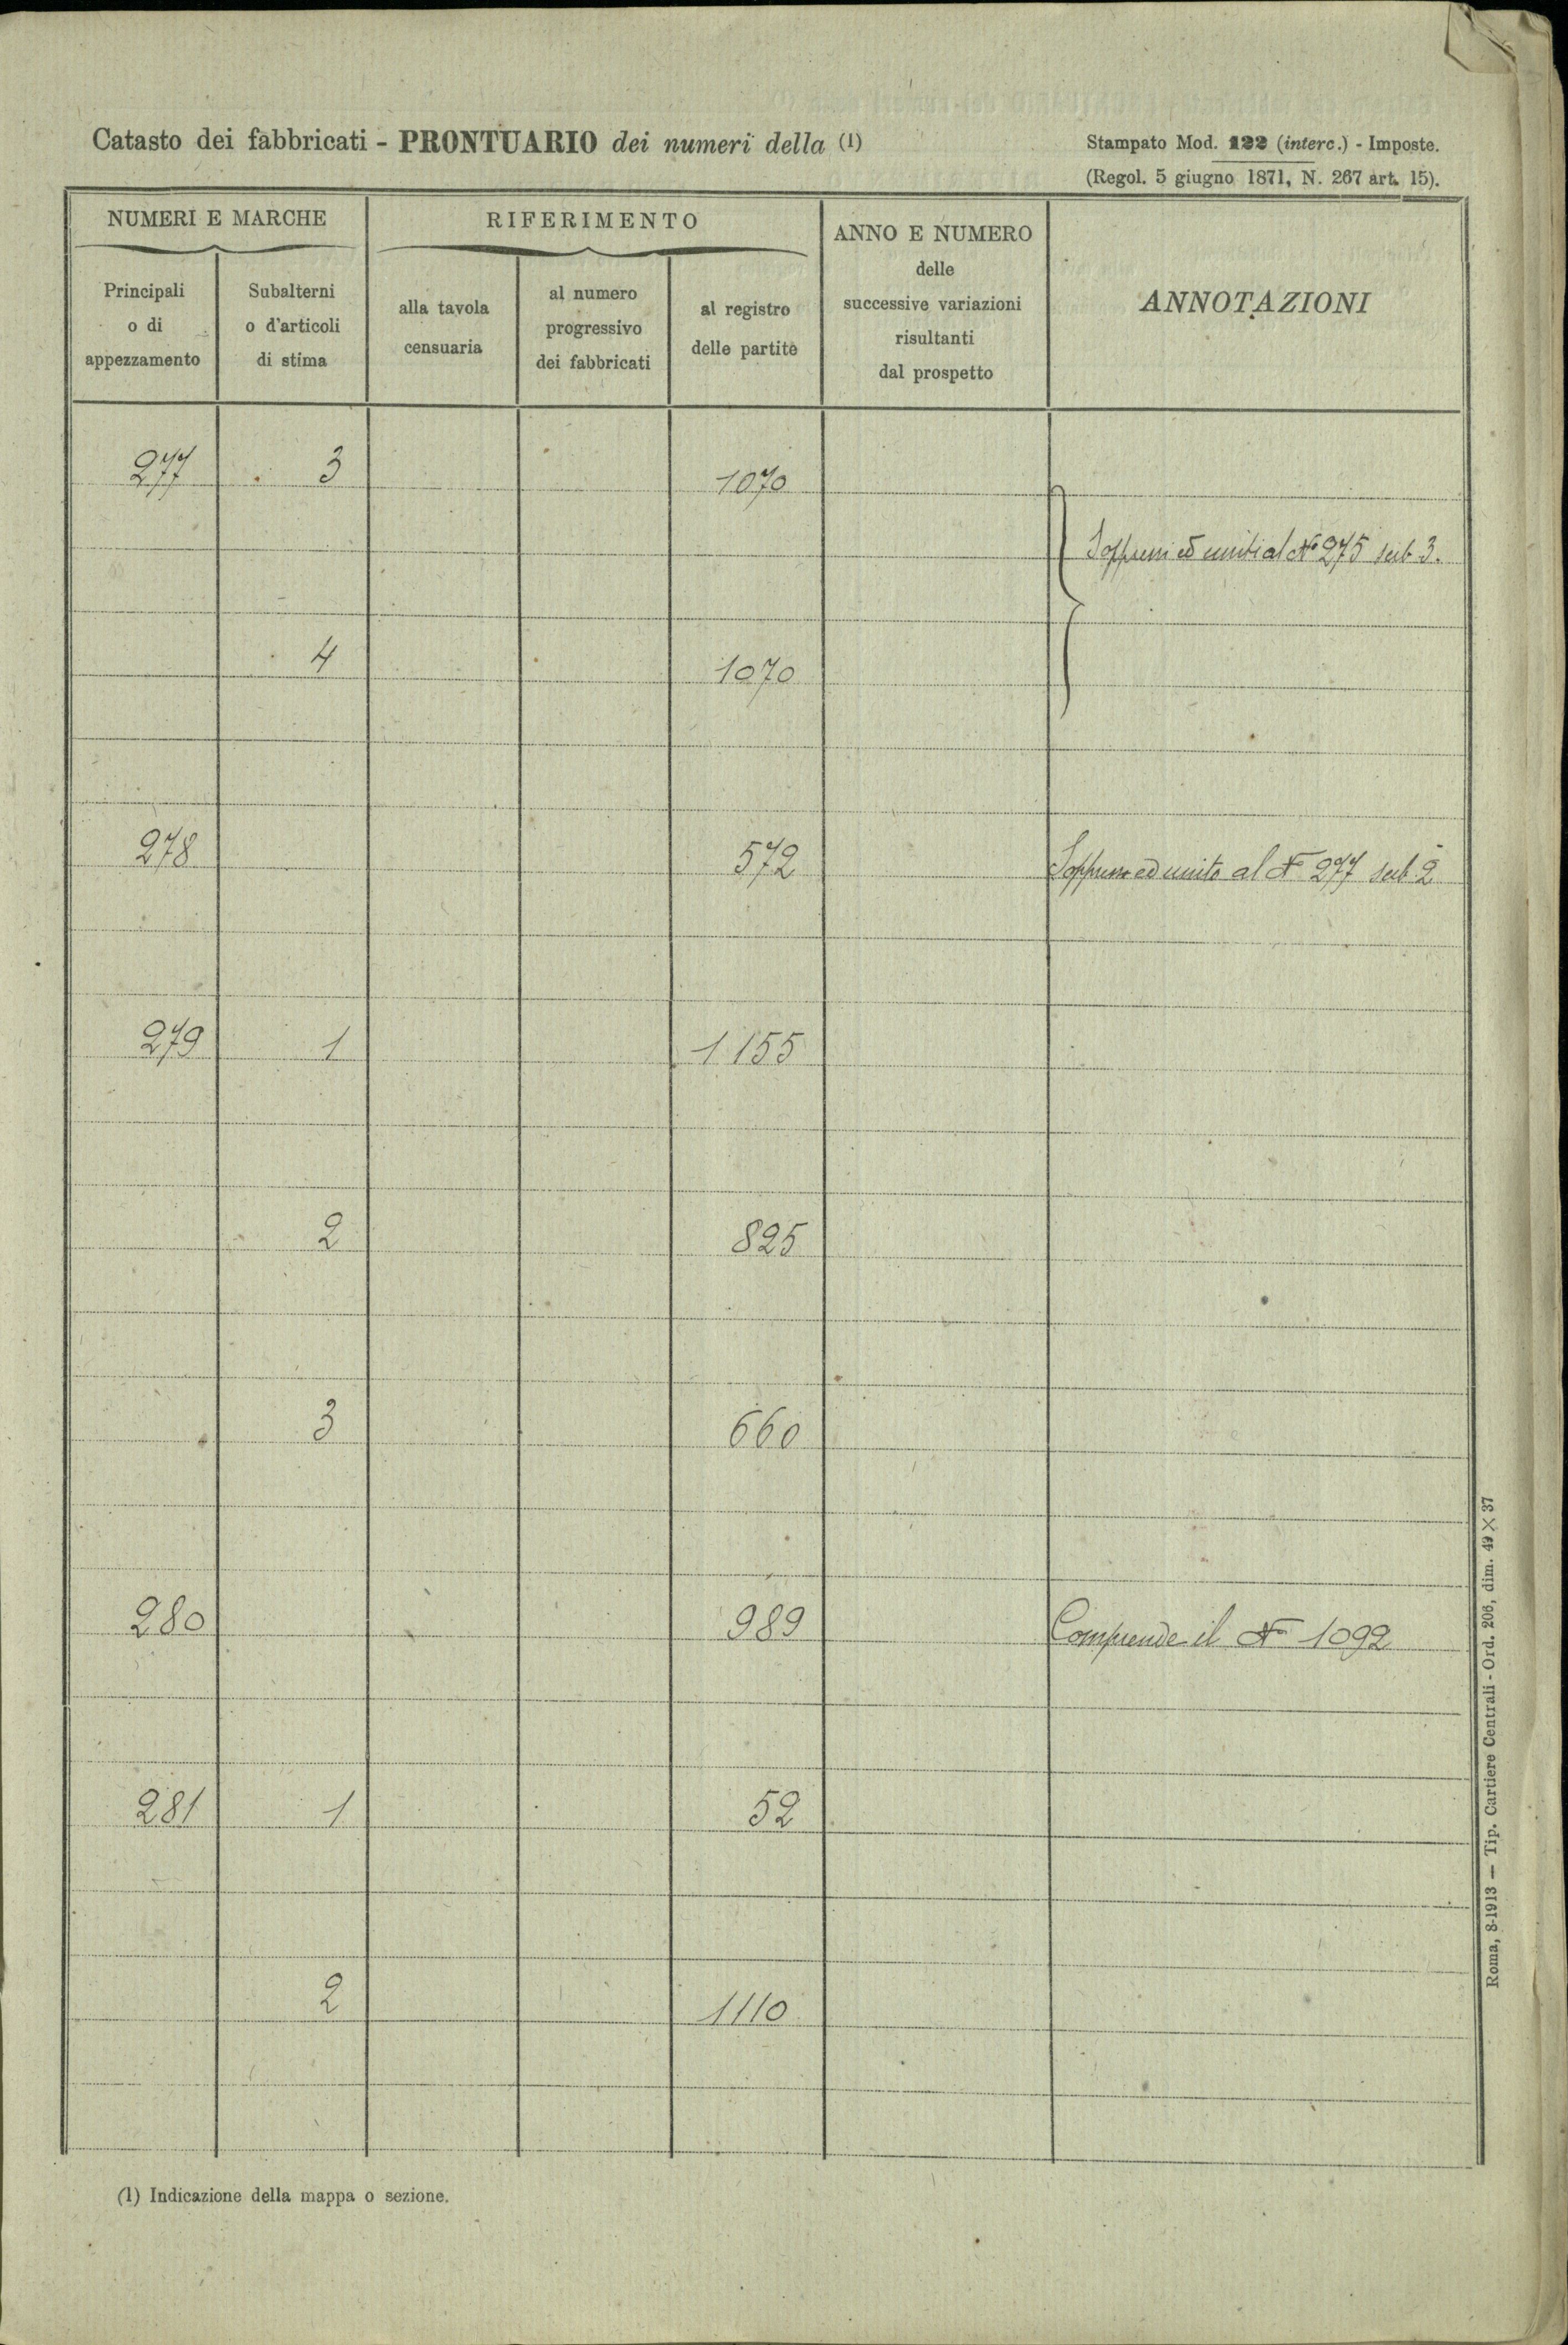 Catasto dei fabbricati - PRONTUARIO dei numeri della (1)
Stampato Mod. 122 (interc.) - Imposte.
(Regol. 5 giugno 1871, N. 267 art. 15).
NUMERI E MARCHE
RIFERIMENTO
ANNO E NUMERO
delle
successive variazioni
risultanti
dal prospetto
ANNOTAZIONI
Principali
o di
appezzamento
Subalterni
o d'articoli
di stima
alla tavola
censuaria
al numero
progressivo
dei fabbricati
al registro
delle partite
277 3 1070
Soppressi ed uniti al No 275 sub 3.
4 1070
278 572 Soppresso ed unito al N 277 sub 2
279 1 1155
2 825
3 660
280 989 Comprende il N 1092
281 1 52
2 1110
(1) Indicazione della mappa o sezione.
Roma, 8-1913 — Tip. Cartiere Centrali - Ord. 206, dim. 49 × 37